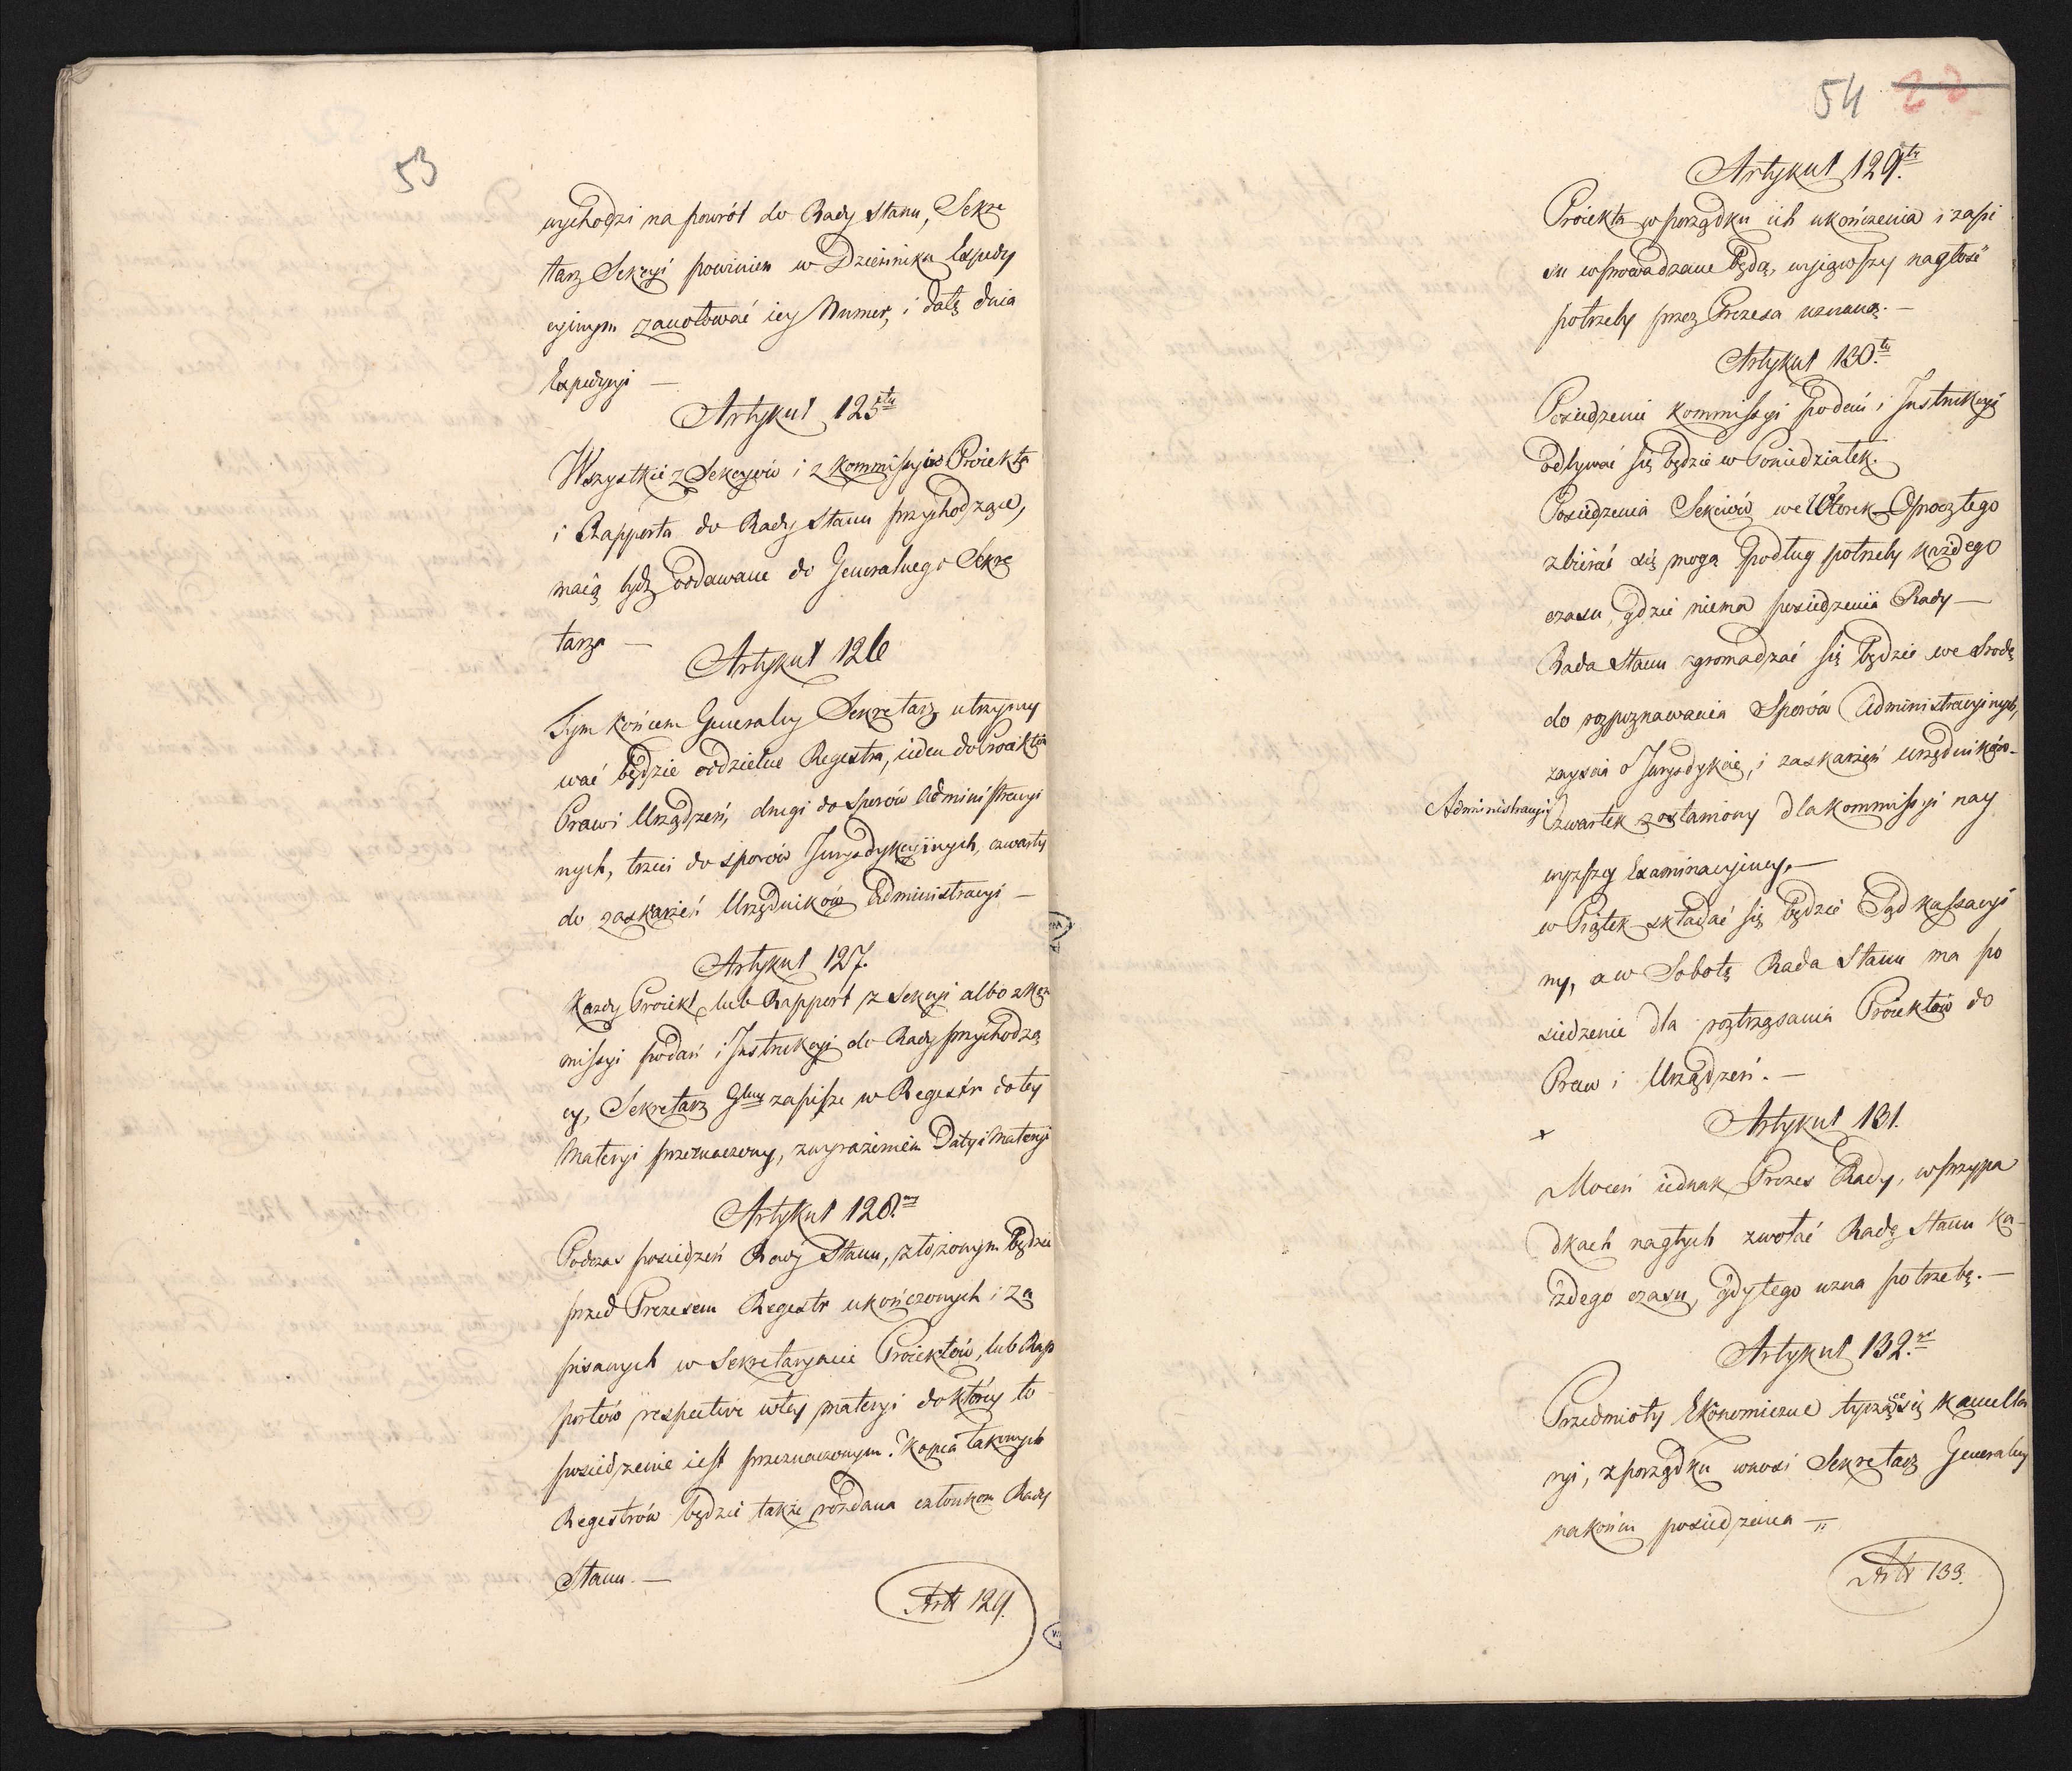 53
wychodzi na powrót do Rady Stanu, Sekre
tarz Sekcyi powinien w Dzienniku Expedy
cyinym zanotować iey Numer, i datę dnia
Expedycyi —
Artykuł 125ty
Wszystkie z Sekcyiów i z Kommissyiów Proiekta
i Rapporta do Rady Stanu przychodzące,
maią bydź oddawane do Generalnego Sekre
tarza —
Artykuł 126
Tym końcem Generalny Sekretarz utrzymy
wać będzie oddzielne Regestra, ieden do Proiektów
Praw i Urządzeń, drugi do Sporów Administracyi
nych, trzeci do sporów Jurysdykcyinych, czwarty
do zaskarżeń Urzędników Administracyi —
Artykuł 127.
Każdy Proiekt lub Rapport z Sekcyi albo z Kom
missyi podań i Instrukcyi do Rady przychodzą
cy, Sekretarz Glny zapisze w Regestr do tey
Materyi przeznaczony, z wyrażeniem Daty i Materyi
Artykuł 128my
Podczas posiedzeń Rady Stanu, złożonym będzie
przed Prezesem Regestr ukończonych i za
pisanych w Sekretaryacie Proiektów, lub Rap
portów respective w tey materyi do którey to
posiedzenie iest przeznaczonym. Kopia takowych
Regestrów będzie także rozdana członkom Rady
Stanu. —
Artt 129.
54 22
Artykuł 129.ty
Proiekta w porządku ich ukończenia i zapi
su wprowadzane będą, wyiąwszy nagłość
potrzeby przez Prezesa uznaną. —
Artykuł 130.ty
Posiedzenie Kommissyi podań i Instrukcyi
odbywać się będzie w Poniedziałek.
Posiedzenia Sekciów we Wtorek Oprocz tego
zbierać się mogą podług potrzeby każdego
czasu, gdzie niema posiedzenia Rady —
Rada Stanu zgromadzać się będzie we Srodę
do rozpoznawania Sporów Administracyinych,
zayscia o Jurysdykcie, i zaskarżeń urzędników
Administracyi Czwartek zostawiony dla Kommissyi nay
wyższey Examinacyiney, —
w Piątek składać się będzie Sąd Kassacyi
ny, a w Sobotę Rada Stanu ma po
siedzenie dla roztrząsania Proiektów do
Praw i Urządzeń. —
x
Artykuł 131.
Mocen iednak Prezes Rady, w przypa
dkach nagłych zwołać Radę Stanu ka-
żdego czasu, gdy tego uzna potrzebę. —
Artykuł 132.gi
Przedmioty Ekonomiczne tyczące się Kancella
ryi, z porządku wnosi Sekretarz Generalny
na końcu posiedzenia —
Artt 133.